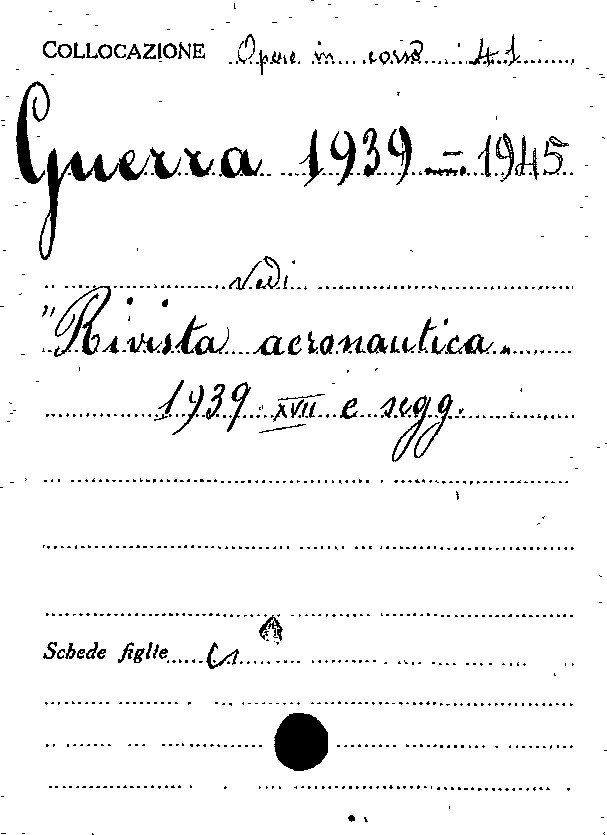 COLLOCAZIONE Opere in corso 41
Guerra 1939 - 1945
vedi
"Rivista aeronautica"
1939 XVII e segg.
Schede figlie